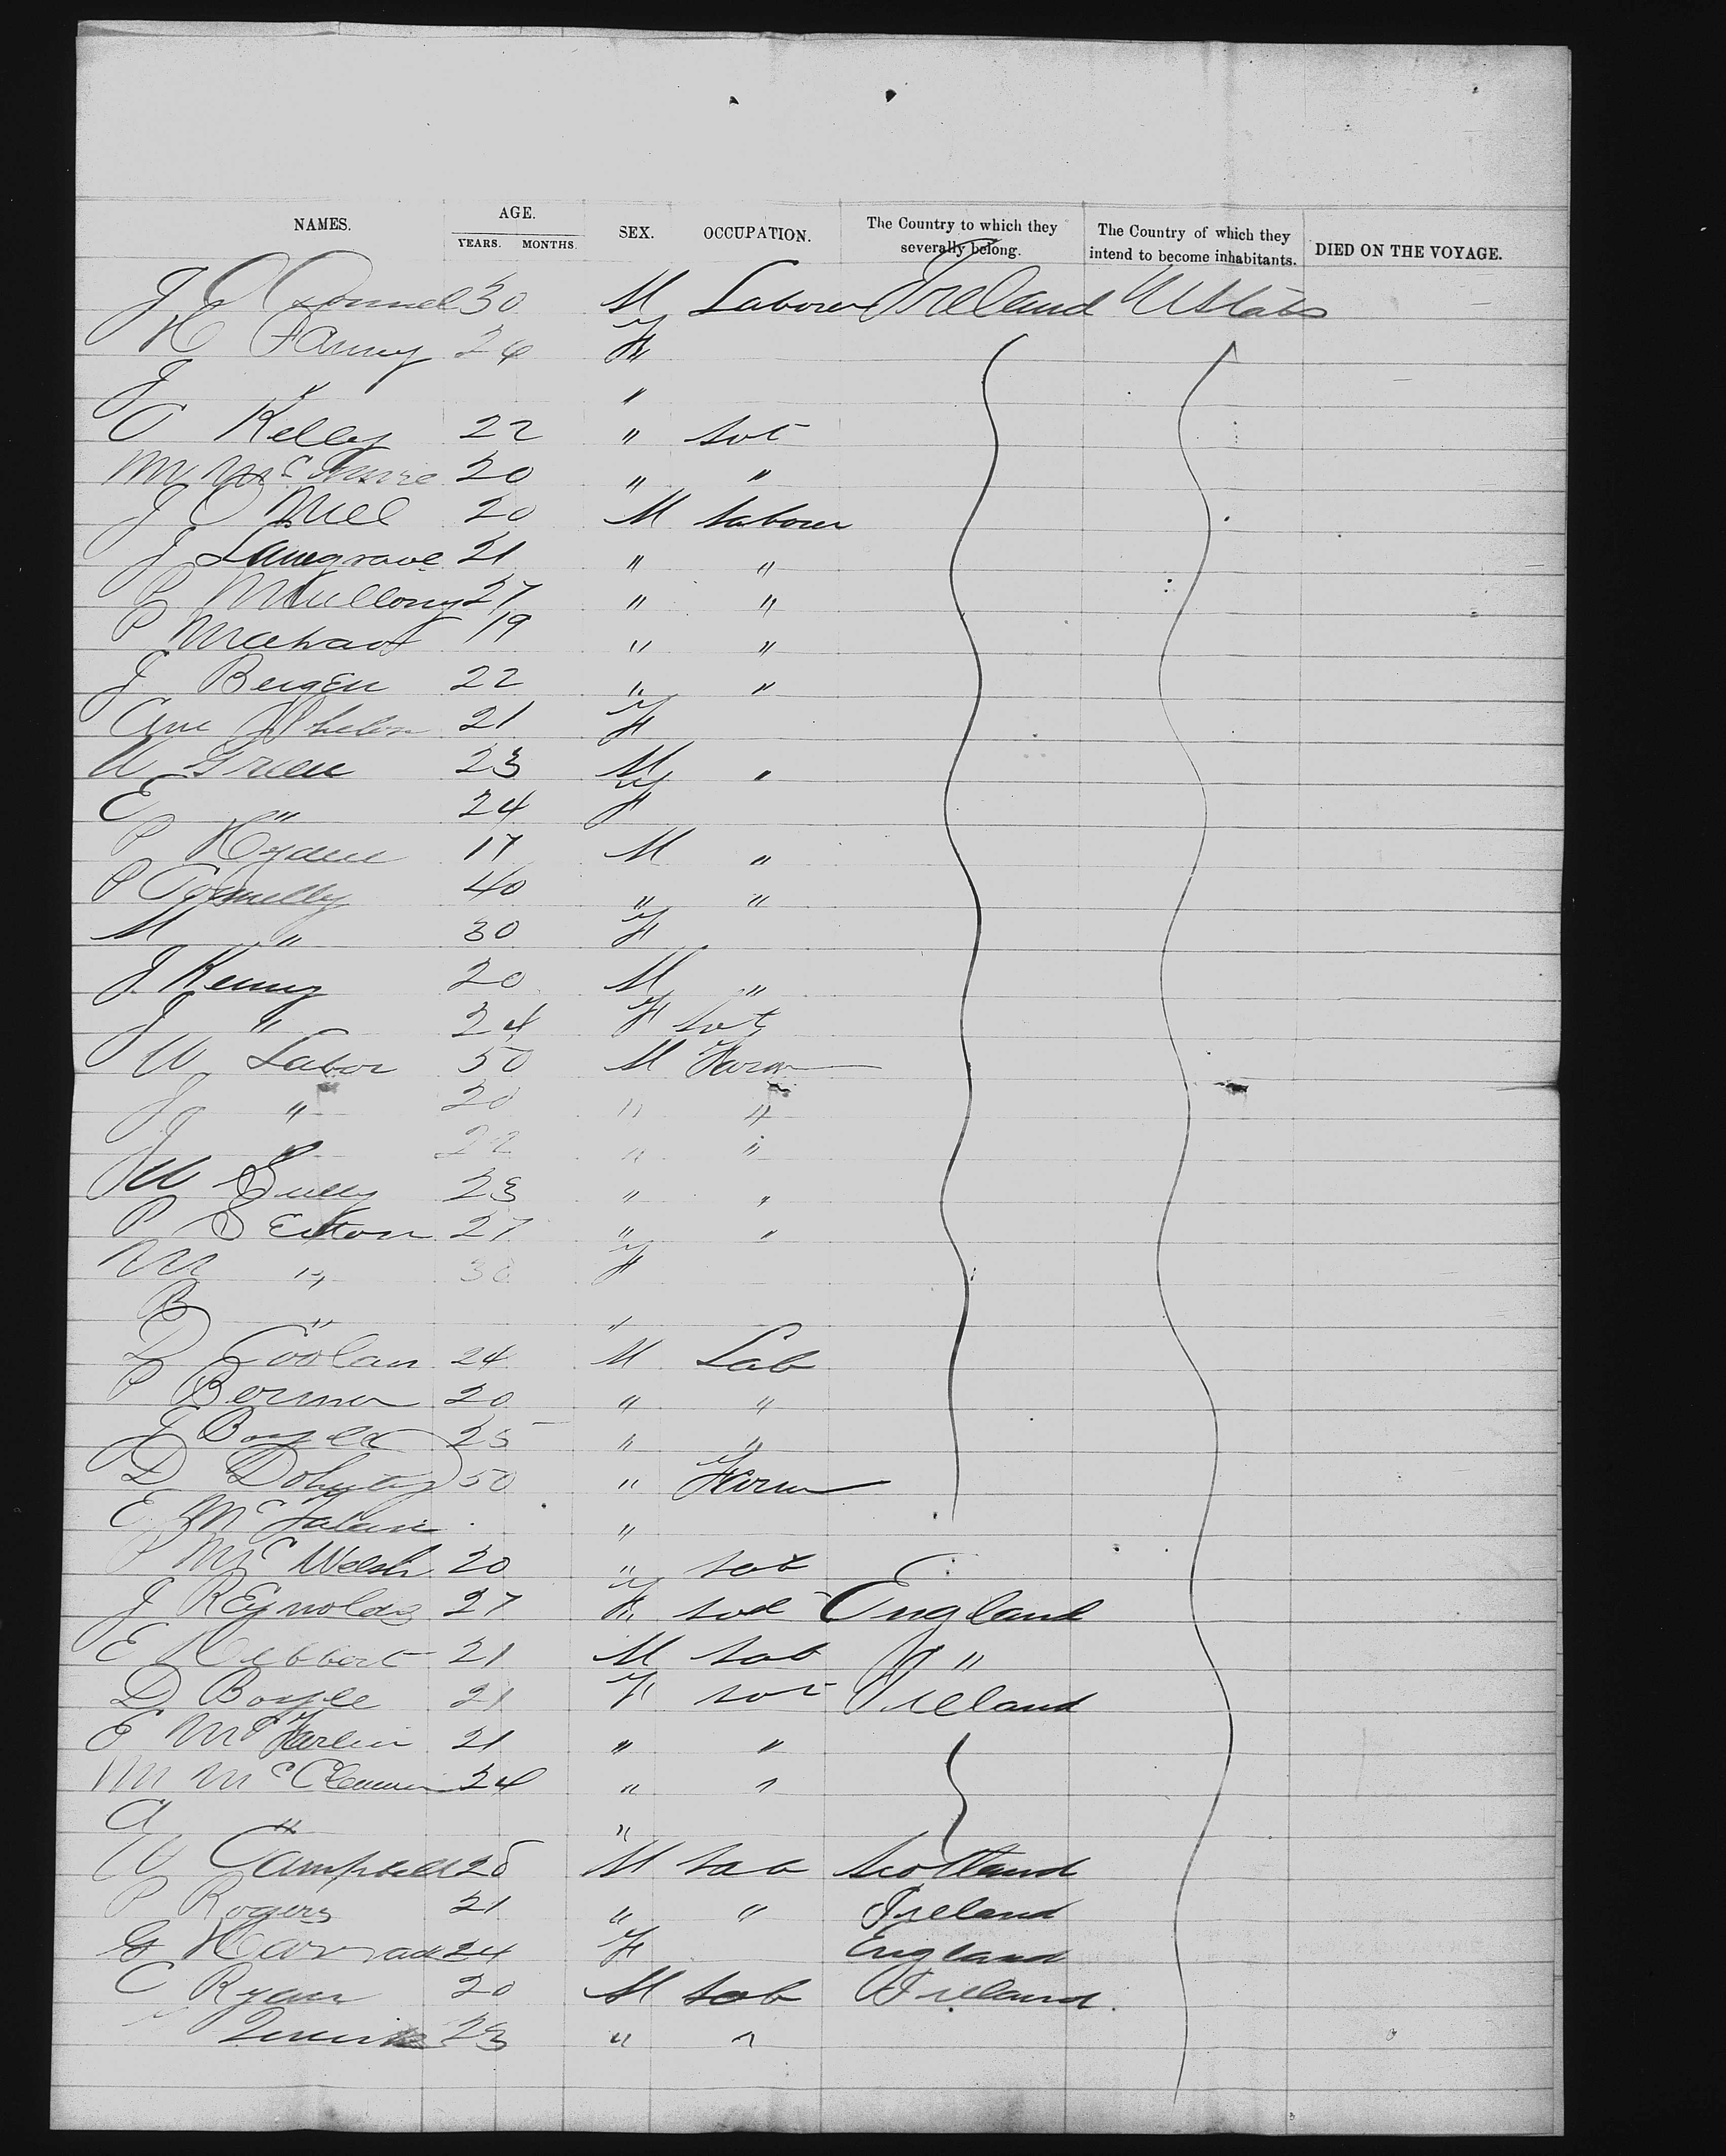 NAMES. AGE. YEARS. MONTHS. SEX. OCCUPATION. The Country to which they severally belong. The Country of which they intend to become inhabitants. DIED ON THE VOYAGE.
J O'Connel 30 M Laborer Ireland UStates
H Fanny 24 F
J " "
C Kelly 22 " Svt
M 20 " "
J O Niel 20 M Labourer
J 21 " "
P 27 " "
P 19 " "
J Bergen 22 " "
Ann Whelen 21 F
W Green 23 M "
E " 24 F
P 17 M "
P Connelly 40 " "
M " 30 F
J. Kenny 20 M "
J " 24 F Svt
W Labor 50 M Farmer
J " 20 " "
J " 22 " "
W 23 " "
P Sexton 27 " "
M " 30 F
B " "
D Coolan 24 M Lab
P 20 " "
J Boyle 25 " "
D Doherty 50 " Farmer
E "
P Welsh 20 " Lab
J REynolds 27 F England
E Hibbert 21 M Lab "
D Boyle 21 F Svt Ireland
E McFarlin 21 " "
M 24 " "
A " "
W Campbell 25 M Lab Scotland
P Rogers 21 " " Ireland
G 24 F England
C Ryan 20 M Lab Ireland.
23 " "